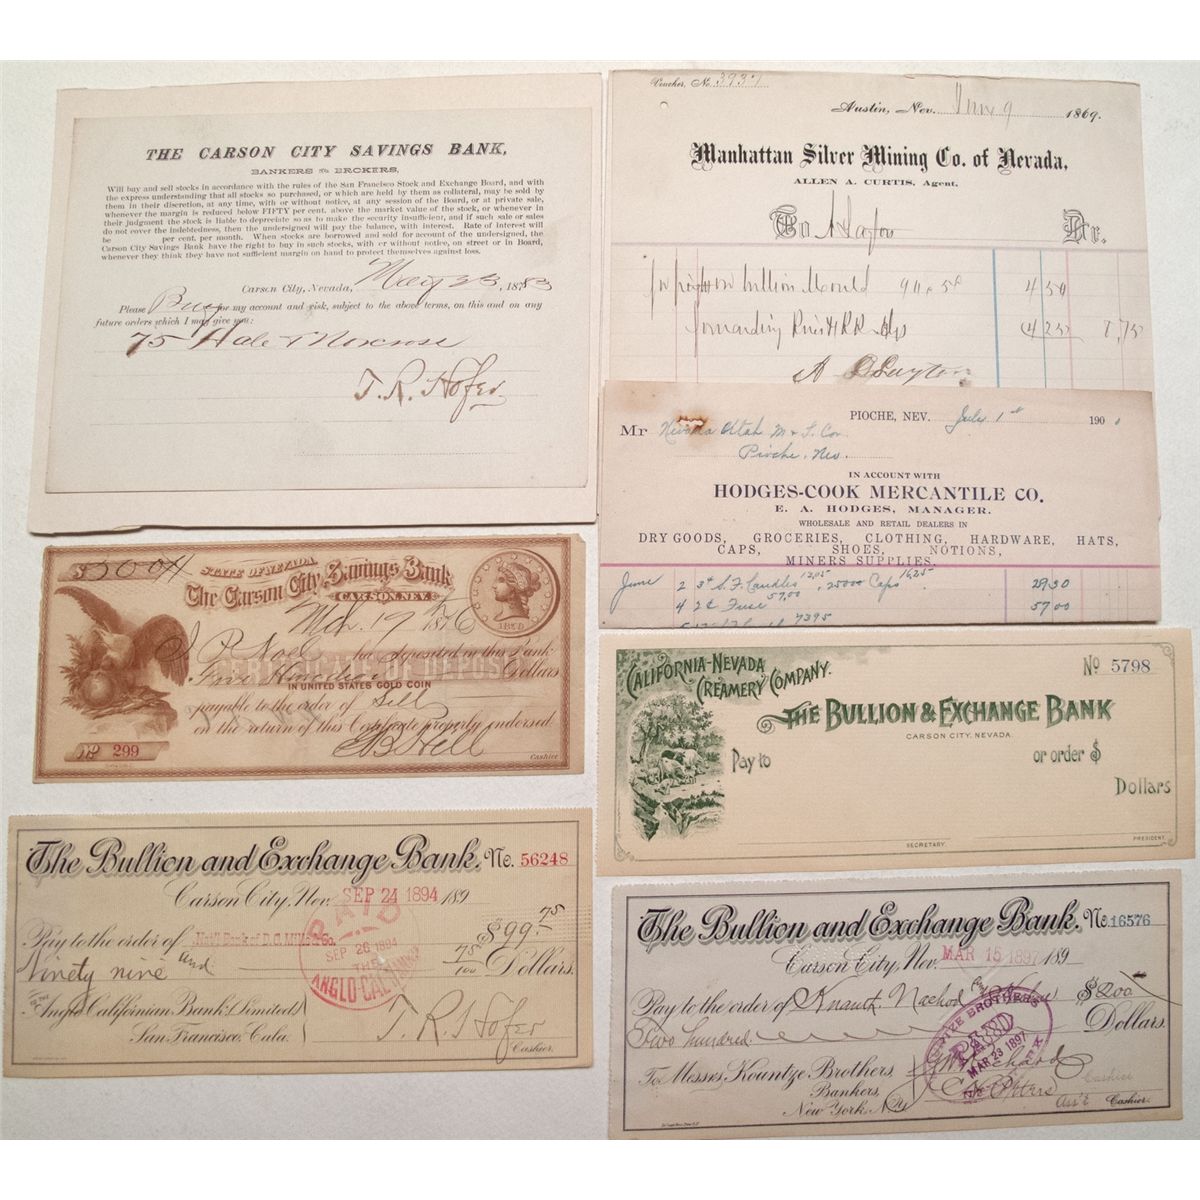 THE CARSON CITY SAVINGS BANK,
BANKERS & BROKERS,
Will buy and sell stocks in accordance with the rules of the San Francisco Stock and Exchange Board, and with
the express understanding that all stocks so purchased, or which are held by them as collateral, may be sold by
them in their discretion, at any time, with or without notice, at any session of the Board, or at private sale,
whenever the margin is reduced below FIFTY per cent. above the market value of the stock, or whenever in
their judgment the stock is liable to depreciate so as to make the security insufficient, and if such sale or sales
do not cover the indebtedness, then the undersigned will pay the balance, with interest. Rate of interest will
be per cent. per month. When stocks are borrowed and sold for account of the undersigned, the
Carson City Savings Bank have the right to buy in such stocks, with or without notice, on street or in Board,
whenever they think they have not sufficient margin on hand to protect themselves against loss.
Carson City, Nevada, May 23, 1883
Please Buy for my account and risk, subject to the above terms, on this and on any
future orders which I may give you:
75 Hale & Norcross
T. R. Hofer
Voucher, No. 3937
Austin, Nev. June 9 1869.
Manhattan Silver Mining Co. of Nevada,
ALLEN A. CURTIS, Agent,
To Dr.
bullion Mould 4 50
Forwarding 4 25 8,75
PIOCHE, NEV. July 1st 190
Mr Nevada Utah M & S. Co
Pioche, Nev.
IN ACCOUNT WITH
HODGES-COOK MERCANTILE CO.
E. A. HODGES, MANAGER.
WHOLESALE AND RETAIL DEALERS IN
DRY GOODS, GROCERIES, CLOTHING, HARDWARE, HATS,
CAPS, SHOES, NOTIONS,
MINERS SUPPLIES.
June 2 S. F. Candles 12,05 Caps 16,25 28 30
4 Fuse 57,00 57 00
7395
$500
STATE OF NEVADA
The Carson City Savings Bank
CARSON, NEV.
Mch. 17 1876
has deposited in this Bank
CERTIFICATE OF DEPOSIT
Five Hundred Dollars
IN UNITED STATES GOLD COIN
payable to the order of Self
on the return of this Certificate properly endorsed
No 299
Cashier
CALIFORNIA-NEVADA
CREAMERY COMPANY.
No 5798
THE BULLION & EXCHANGE BANK
CARSON CITY, NEVADA.
Pay to or order $
Dollars
SECRETARY. PRESIDENT.
The Bullion and Exchange Bank. No. 56248
Carson City, Nev. SEP 24 1894 189
Pay to the order of Nat'l Bank of D.O. Mills & Co. $99.75
Ninety nine and 75/100 Dollars.
PAID
SEP 26 1894
THE
ANGLO-CALIFORNIAN
To the
Anglo Californian Bank (Limited)
San Francisco, Cala.
T. R. Hofer
Cashier.
The Bullion and Exchange Bank. No. 16576
Carson City, Nev. MAR 15 1897 189
Pay to the order of Knauth. Nachod & Kuhne $200
Two hundred Dollars.
KOUNTZE BROTHERS
PAID
MAR 23 1897
To Messrs Kountze Brothers,
Bankers,
New York. N.Y.
Cashier
Ass't Cashier.